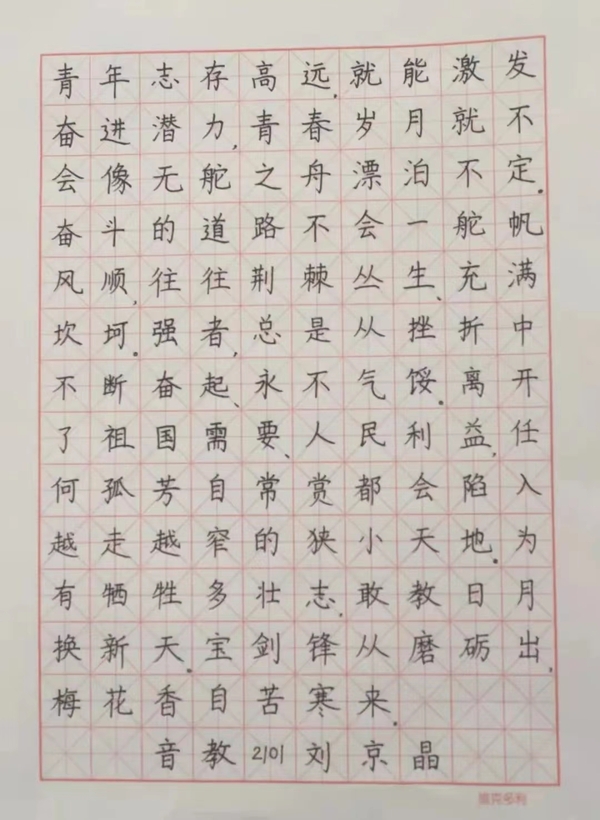 青年志存高远,就能激发
奋进潜力,青春岁月就不
会像无舵之舟漂泊不定。
奋斗的道路不会一舵帆
风顺,往往荆棘丛生、充满
坎坷。强者,总是从挫折中
不断奋起、永不气馁。离开
了祖国需要、人民利益,任
何孤芳自常赏都会陷入
越走越窄的狭小天地。为
有牺牲多壮志,敢教日月
换新天。宝剑锋从磨砺出,
梅花香自苦寒来。
音教2101刘京晶